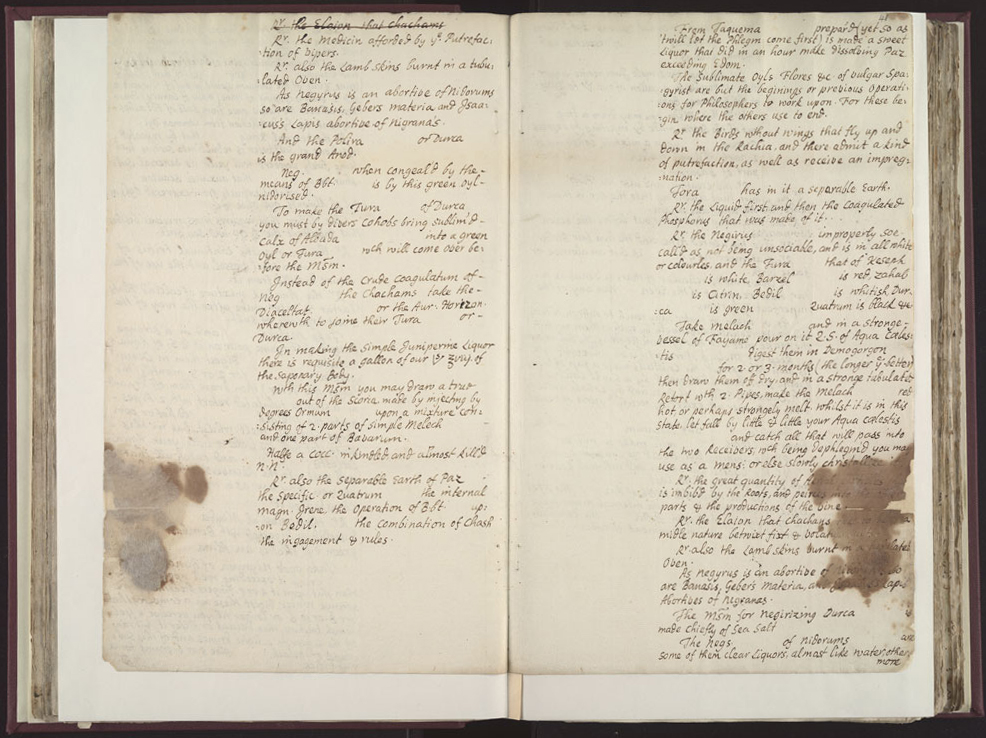 Rx. the Elaion that Chachams
Rx. the Medicin afforded by ye Putrefac:
:tion of Vipers.
Rx. also the Lamb skins burnt in a tubu:
:lated Oven.
As Negyrus is an abortive of Nidorums
so are Banasis, Gebers materia and Isaa:
:cus's Lapis abortive of Nigrana's.
And the Polira or Durca
is the grand Arod.
Neg. when congeal'd by the -
means of Bbt is by this green oyl -
nidorised.
To make the Tura of Durca
you must by divers Cohobs bring sublim'd -
Calx of Albada into a green
oyl or Tura wch will come over be:
:fore the MSm.
Instead of the Crude Coagulatum of -
Neg the Chachams take the -
Diaceltat. or the Aur. Horizon.
wherewith to joine their Tura or -
Durca.
In making the Simple Juniperine Liquor
there is requisite a gallon of our to of
the Saponary Body.
With this MSm you may draw a true
out of the Scoria made by injecting by
degrees Ormum upon a mixture con:
:sisting of 2. parts of simple Melech
and one part of Babarum.
Halfe a Cocc. inkindled and almost kill'd
N.N.
Rx. also the Separable Earth of Paz
the Specific. or Quatrum the internal
magn. Irene. the Operation of Bbt up:
:on Bedil. the Combination of Chash
the ingagement & rules.
41
From Taquema prepar'd (yet so as
'twill let the Phlegm come first) is made a sweet
Liquor that did in an hour make dissolving Paz
exceeding Edom.
The Sublimate Oyls Flores &c. of vulgar Spa:
:gyrist are but the beginings or previous operati:
:ons for Philosophers to work upon. For these be:
:gin where the others use to end.
Rx. the Birds without wings that fly up and
down in the Rachia, and there admit a kind
of putrefaction, as well as receive an impreg:
:nation.
Tora has in it a separable Earth.
Rx. the Liquid first and then the Coagulated
Phosphorus that was made of it.
Rx. the Negirus improperly soe
call'd as not being unsociable, and is in all white
or colourles, and the Tura that of Keseph
is white, Barzel is red, Zahab
is Citrin, Bedil is whitish Dur:
:ca is green Quatrum is black &c
Take Melach and in a stronge -
vessel of Fayame pour on it 2.S. of Aqua Cales:
:tis digest them in Demogorgon
for 2. or 3. months (the longer ye better)
then draw them of dry, and in a stronge tubulated
Retort with 2. Pipes, make the Melach red
hot or perhaps strongely melt. whilst it is in this
state. let fall by little & little your Aqua calestis
and catch all that will pass into
the two Receivers, wch being dephlegm'd you may
use as a mens: or else slowly christallize.
Rx. the great quantity of
is imbib'd by the Roots, and
parts & the productions of the vine.
Rx. the Elaion that chachams
midle nature betwixt fixt & volat
Rx. also the Lamb skins burnt in a tubulated
Oven.
As negyrus is an abortive of so
are Banasis, Gebers materia, and Lapis
Abortives of Nigranas.
The MSm for Negirizing Durca is
made chiefly of Sea Salt
The Negs. of nidorums are
some of them clear Liquors, almost like water, other
more